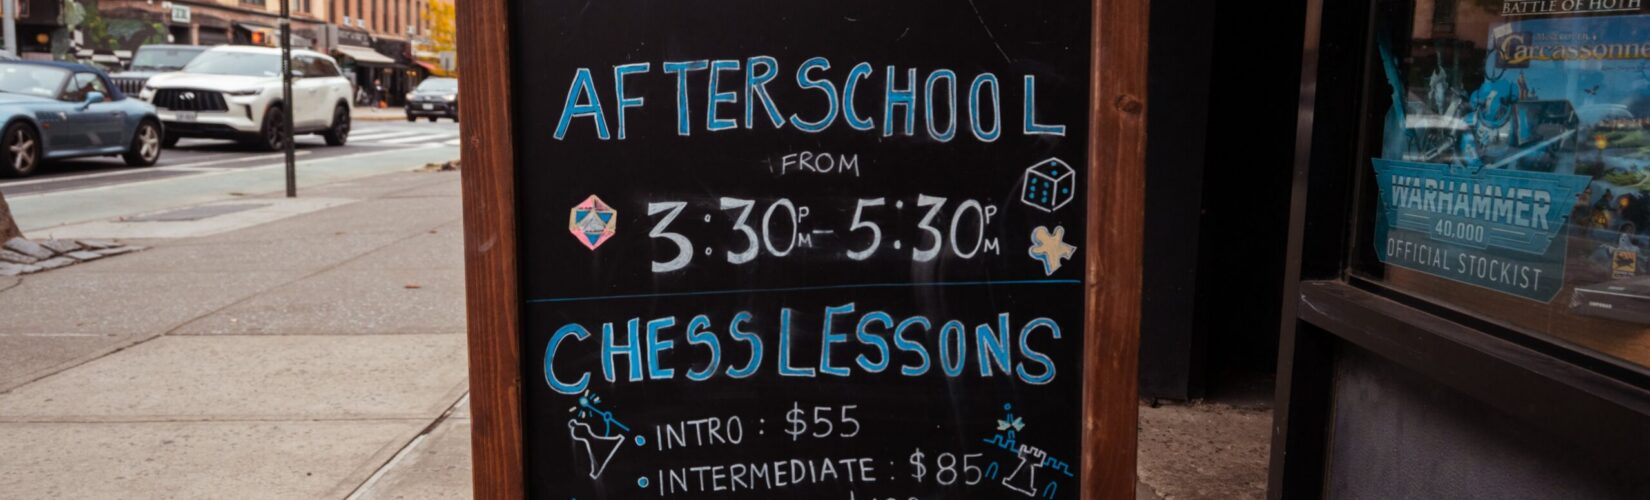 AFTERSCHOOL
FROM
3:30PM-5:30PM
CHESS LESSONS
• INTRO : $55
• INTERMEDIATE : $85
BATTLE OF HOTH
Carcassonne
WARHAMMER
40,000
OFFICIAL STOCKIST